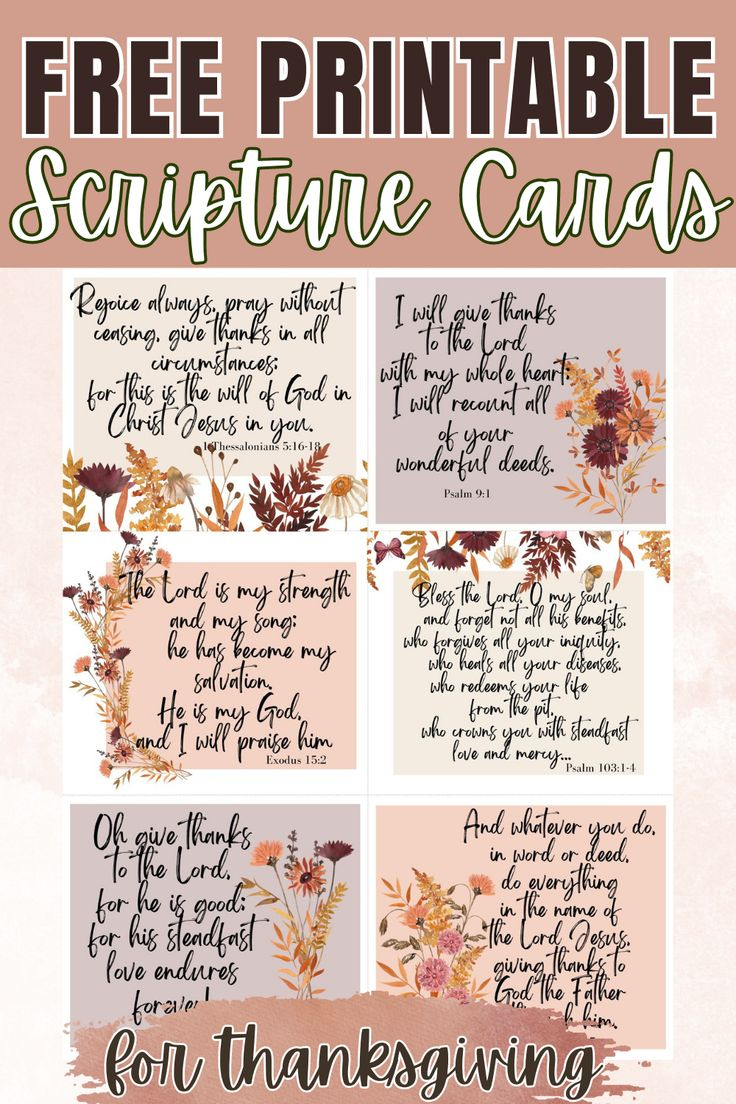 FREE PRINTABLE
Scripture Cards
Rejoice always, pray without
ceasing, give thanks in all
circumstances;
for this is the will of God in
Christ Jesus in you.
1 Thessalonians 5:16-18
I will give thanks
to the Lord
with my whole heart;
I will recount all
of your
wonderful deeds.
Psalm 9:1
The Lord is my strength
and my song;
he has become my
salvation,
He is my God,
and I will praise him
Exodus 15:2
Bless the Lord, O my soul,
and forget not all his benefits,
who forgives all your iniquity,
who heals all your diseases,
who redeems your life
from the pit,
who crowns you with steadfast
love and mercy...
Psalm 103:1-4
Oh give thanks
to the Lord,
for he is good;
for his steadfast
love endures
forever!
And whatever you do,
in word or deed,
do everything
in the name of
the Lord Jesus,
giving thanks to
God the Father
him.
for thanksgiving